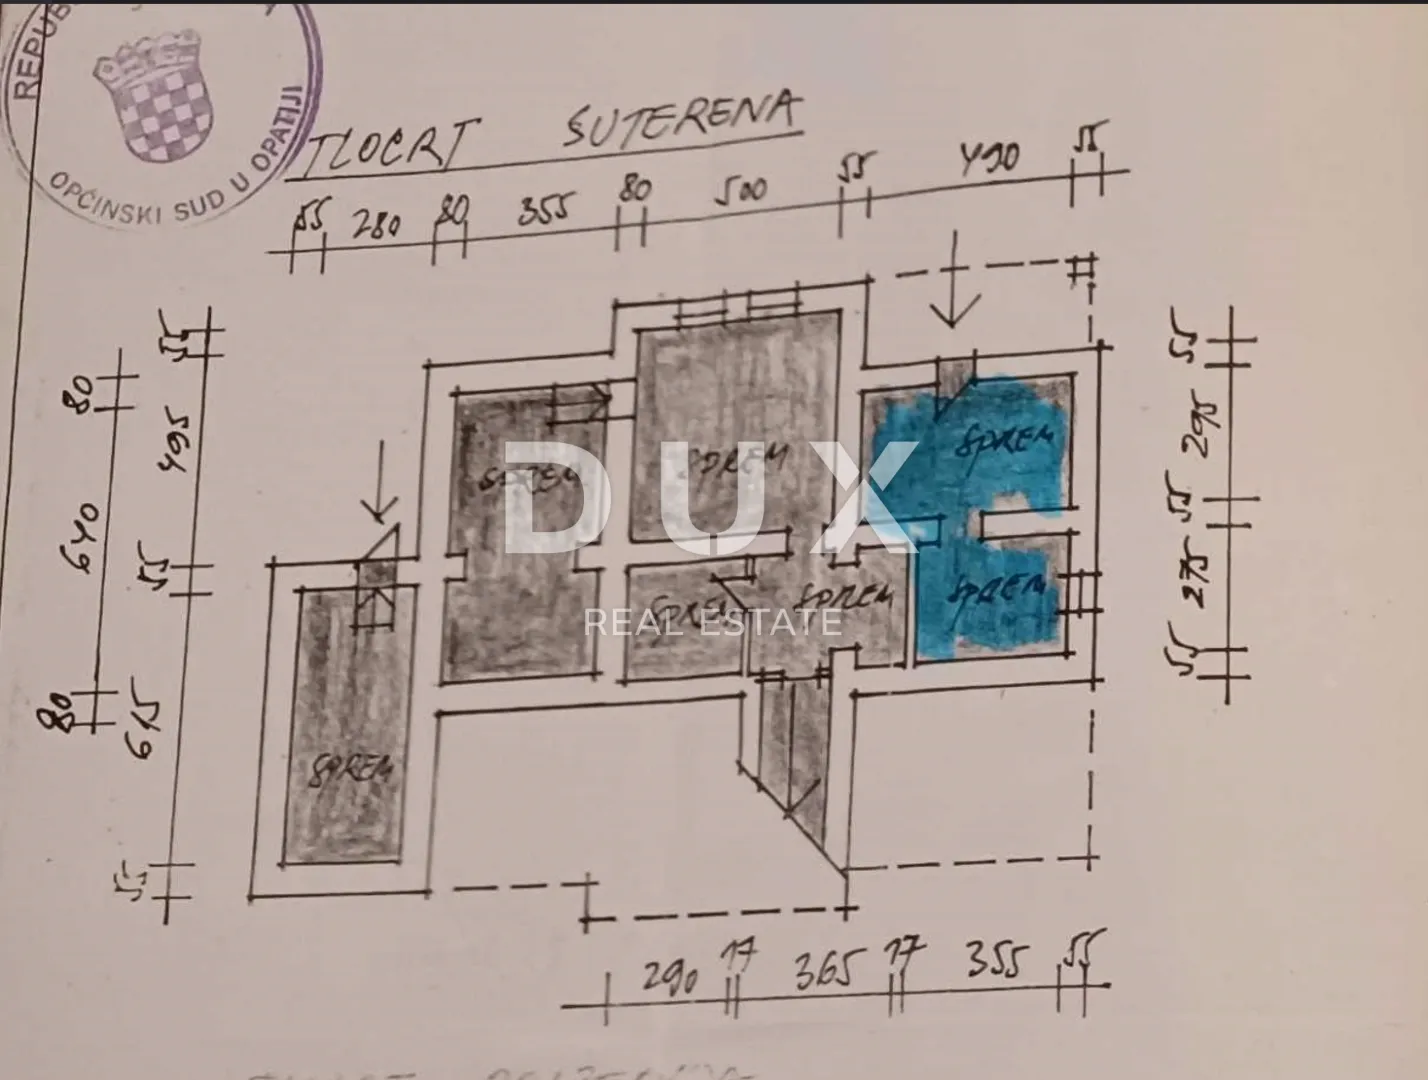 REPUB
OPĆINSKI SUD U OPATIJI
TLOCRT SUTERENA
55 280 80 355 80 500 55 490 55
55
495
55
615
55
80
640
80
55
295
55
275
55
SPREM
SPREM
SPREM
SPREM
SPREM
SPREM
SPREM
DUX
REAL ESTATE
290 17 365 17 355 55